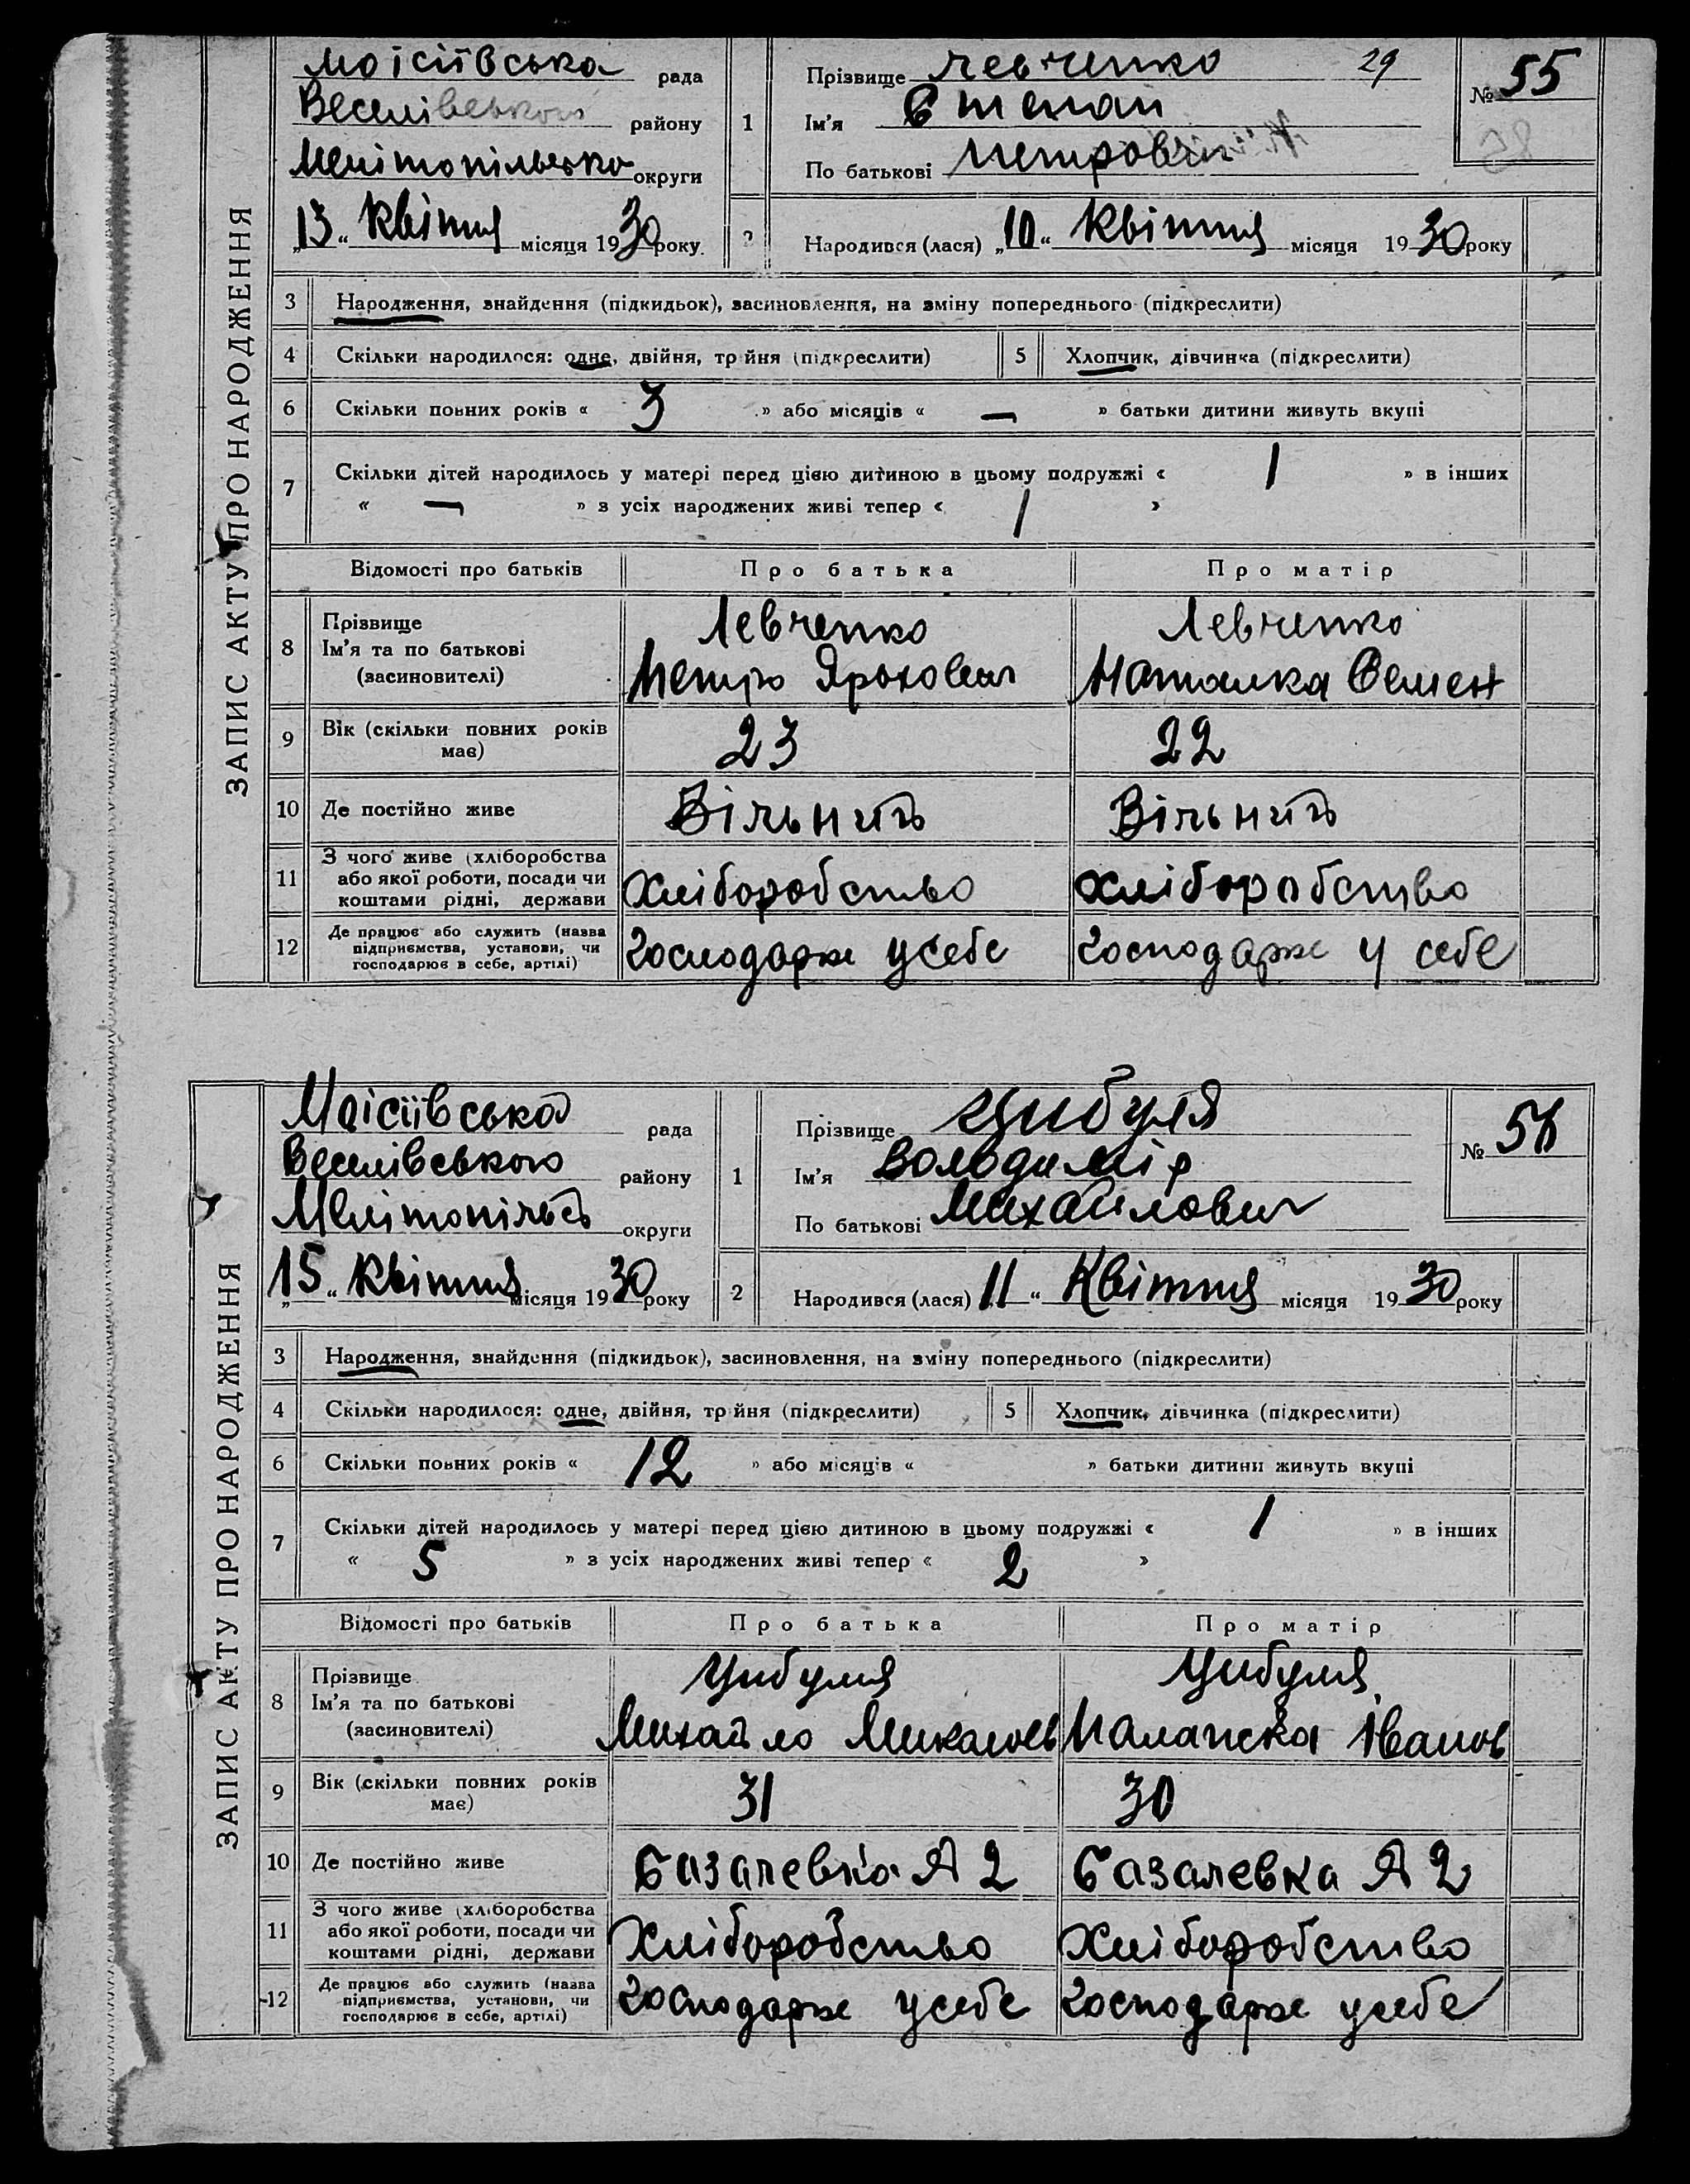 ЗАПИС АКТУ ПРО НАРОДЖЕННЯ
Моісіївська рада
Веселівського району
Мелітопільсько округи
„13“ Квітня місяця 1930 року
1 Прізвище Левченко 29
Ім'я Степан
По батькові Петрович
№ 55
2 Народився (лася) „10“ Квітня місяця 1930 року
3 Народження, знайдення (підкидьок), засиновлення, на зміну попереднього (підкреслити)
4 Скільки народилося: одне, двійня, трійня (підкреслити) 5 Хлопчик, дівчинка (підкреслити)
6 Скільки повних років « 3 » або місяців « — » батьки дитини живуть вкупі
7 Скільки дітей народилось у матері перед цією дитиною в цьому подружжі « 1 » в інших
« — » з усіх народжених живі тепер « 1 »
Відомості про батьків Про батька Про матір
8 Прізвище Левченко Левченко
Ім'я та по батькові Петро Наталка Семен
(засиновителі)
9 Вік (скільки повних років 23 22
має)
10 Де постійно живе
11 З чого живе (хліборобства
або якої роботи, посади чи Хліборобство Хліборобство
коштами рідні, держави
12 Де працює або служить (назва
підприємства, установи, чи Господарже усебе Господарже у себе
господарює в себе, артілі)
ЗАПИС АКТУ ПРО НАРОДЖЕННЯ
Моісіївська рада
Веселівського району
Мелітопільсь округи
„15“ Квітня місяця 1930 року
1 Прізвище Цибуля
Ім'я Володимір
По батькові Михайлович
№ 56
2 Народився (лася) „11“ Квітня місяця 1930 року
3 Народження, знайдення (підкидьок), засиновлення, на зміну попереднього (підкреслити)
4 Скільки народилося: одне, двійня, трійня (підкреслити) 5 Хлопчик, дівчинка (підкреслити)
6 Скільки повних років « 12 » або місяців « » батьки дитини живуть вкупі
7 Скільки дітей народилось у матері перед цією дитиною в цьому подружжі « 1 » в інших
« 5 » з усіх народжених живі тепер « 2 »
Відомості про батьків Про батька Про матір
8 Прізвище Цибуля Цибуля
Ім'я та по батькові Михайло Микалоев Палажка Іванов
(засиновителі)
9 Вік (скільки повних років 31 30
має)
10 Де постійно живе Базалевка А 2 Базалевка А 2
11 З чого живе (хліборобства
або якої роботи, посади чи Хліборобство Хліборобство
коштами рідні, держави
12 Де працює або служить (назва
підприємства, установи, чи Господарже усебе Господарже усебе
господарює в себе, артілі)